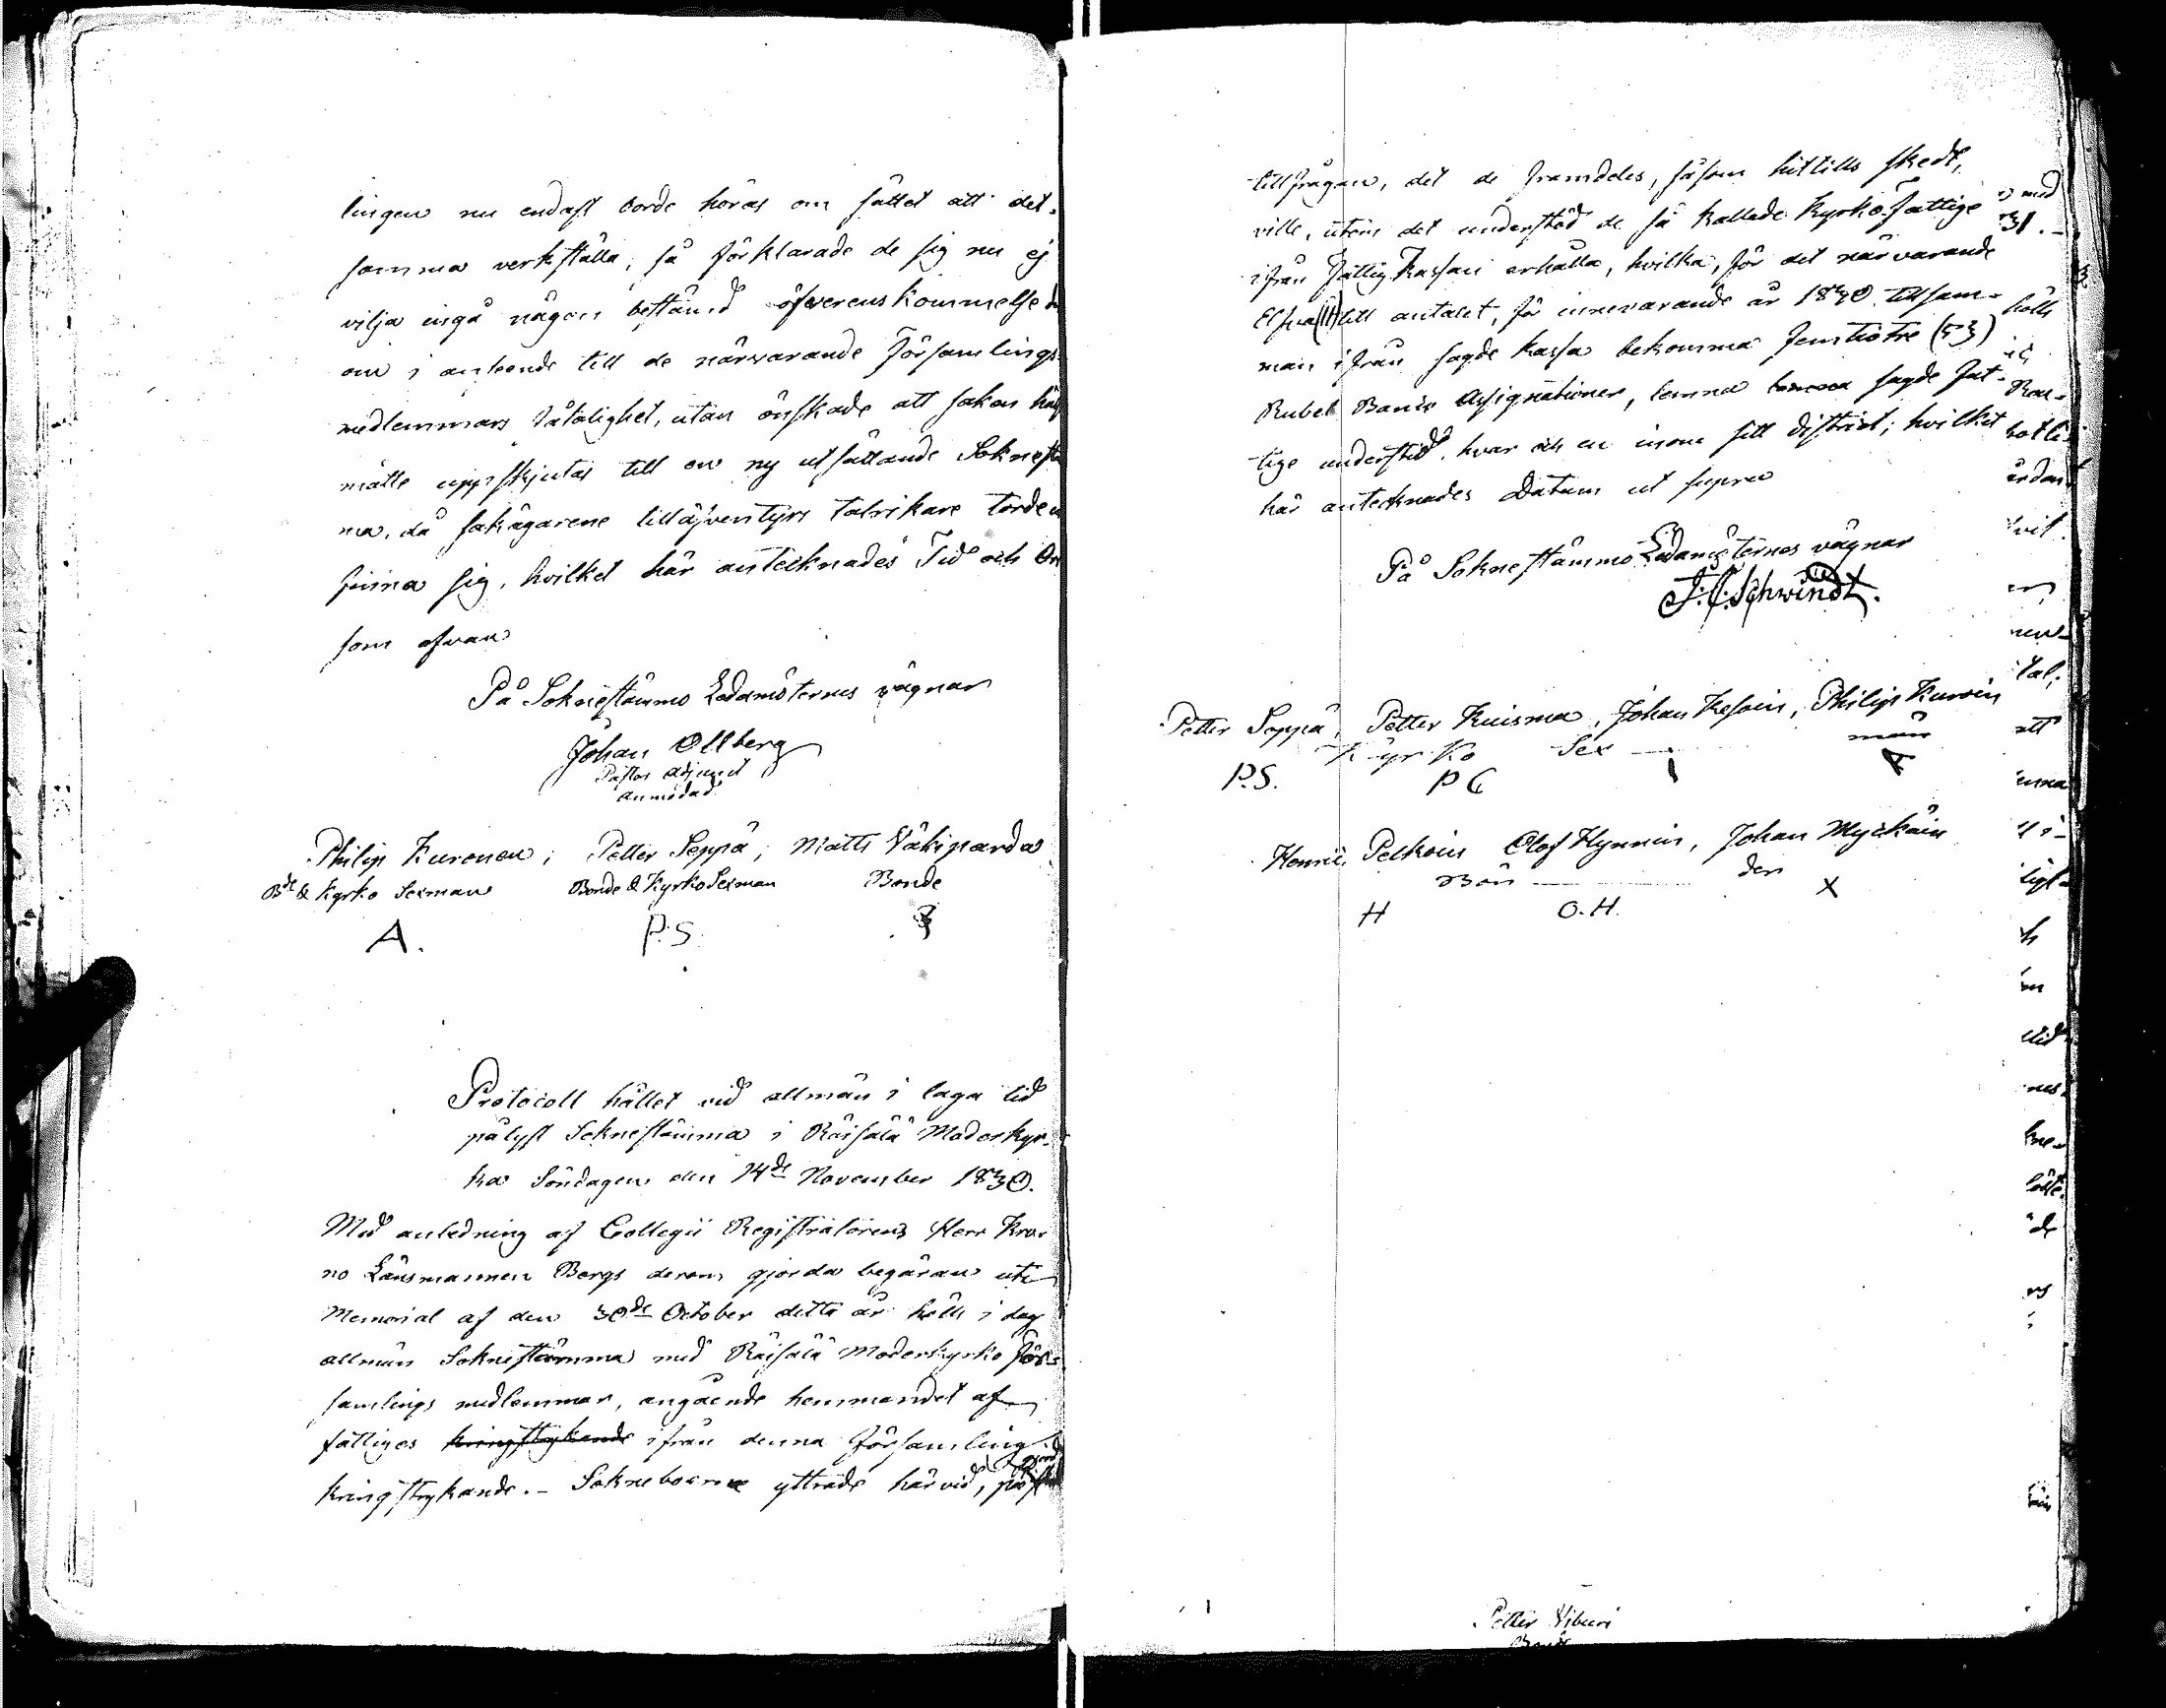 lingen nu endast borde höras om sättet att det-
samma verkställa; så förklarade de sig nu ej
vilja ingå någon bestämd öfverenskommelse
om i anseende till de närvarande Församlings
medlemmars fåtalighet, utan önskade att saken
måtte uppskjutas till en ny utsättande Sokne
ma, då sakägarene tilläfventyrs talrikare torde
finna sig, hvilket här antecknades Tid och Ort
som ofvan
På Soknestämmo Ledamöternes vägnar
Johan Ollberg
Pastors adjunct
anmodad
Philip Kuronen; Petter Seppä; Matts Väkiparda
Bde & Kyrko Sexman Bonde & Kyrko Sexman Bonde
A. P.S.
Protocoll hållet vid allmän i laga tid
pålyst Soknestämma i Räisälä Moderkyr-
ka Söndagen den 14de November 1830.
Med anledning af Collegii Registratorens Herr Kro-
no Länsmannen Bergs derom gjorda begäran uti
Memorial af den 30de October detta år hölls i dag
allmän Soknestämma med Räisälä Moderkyrko För-
samlings medlemmar, angående hemmandet af
fattiges kringstrykande ifrån denna Församling
kringstrykande. - Sokneboerne yttrade härvid, på
tillfrågan, det de framdeles, såsom hittills skedt,
ville, utom det understöd de så kallade Kyrko Fattige
ifrån Fattig Kassan erhålla, hvilka, för det närvarande
Elfva (11) till antalet, för innevarande år 1830 tillsam-
man ifrån sagde Kassa bekomma femtiotre (53)
Rubel Banco Assignationer, lemna sagde Fat-
tige understöd, hvar och en inom sitt district; hvilket
här antecknades Datum ut supra
På Soknestämmo Ledamöternes vägnar
Schwindt.
Petter Seppä, Petter Kuisma, Johan Kesoin, Philip Kuroin
Kyrko Sex — män
P.S. A
Henric Pelkoin Olof Hynnin, Johan Myckäin
Bön — der
H O.H. X
Petter